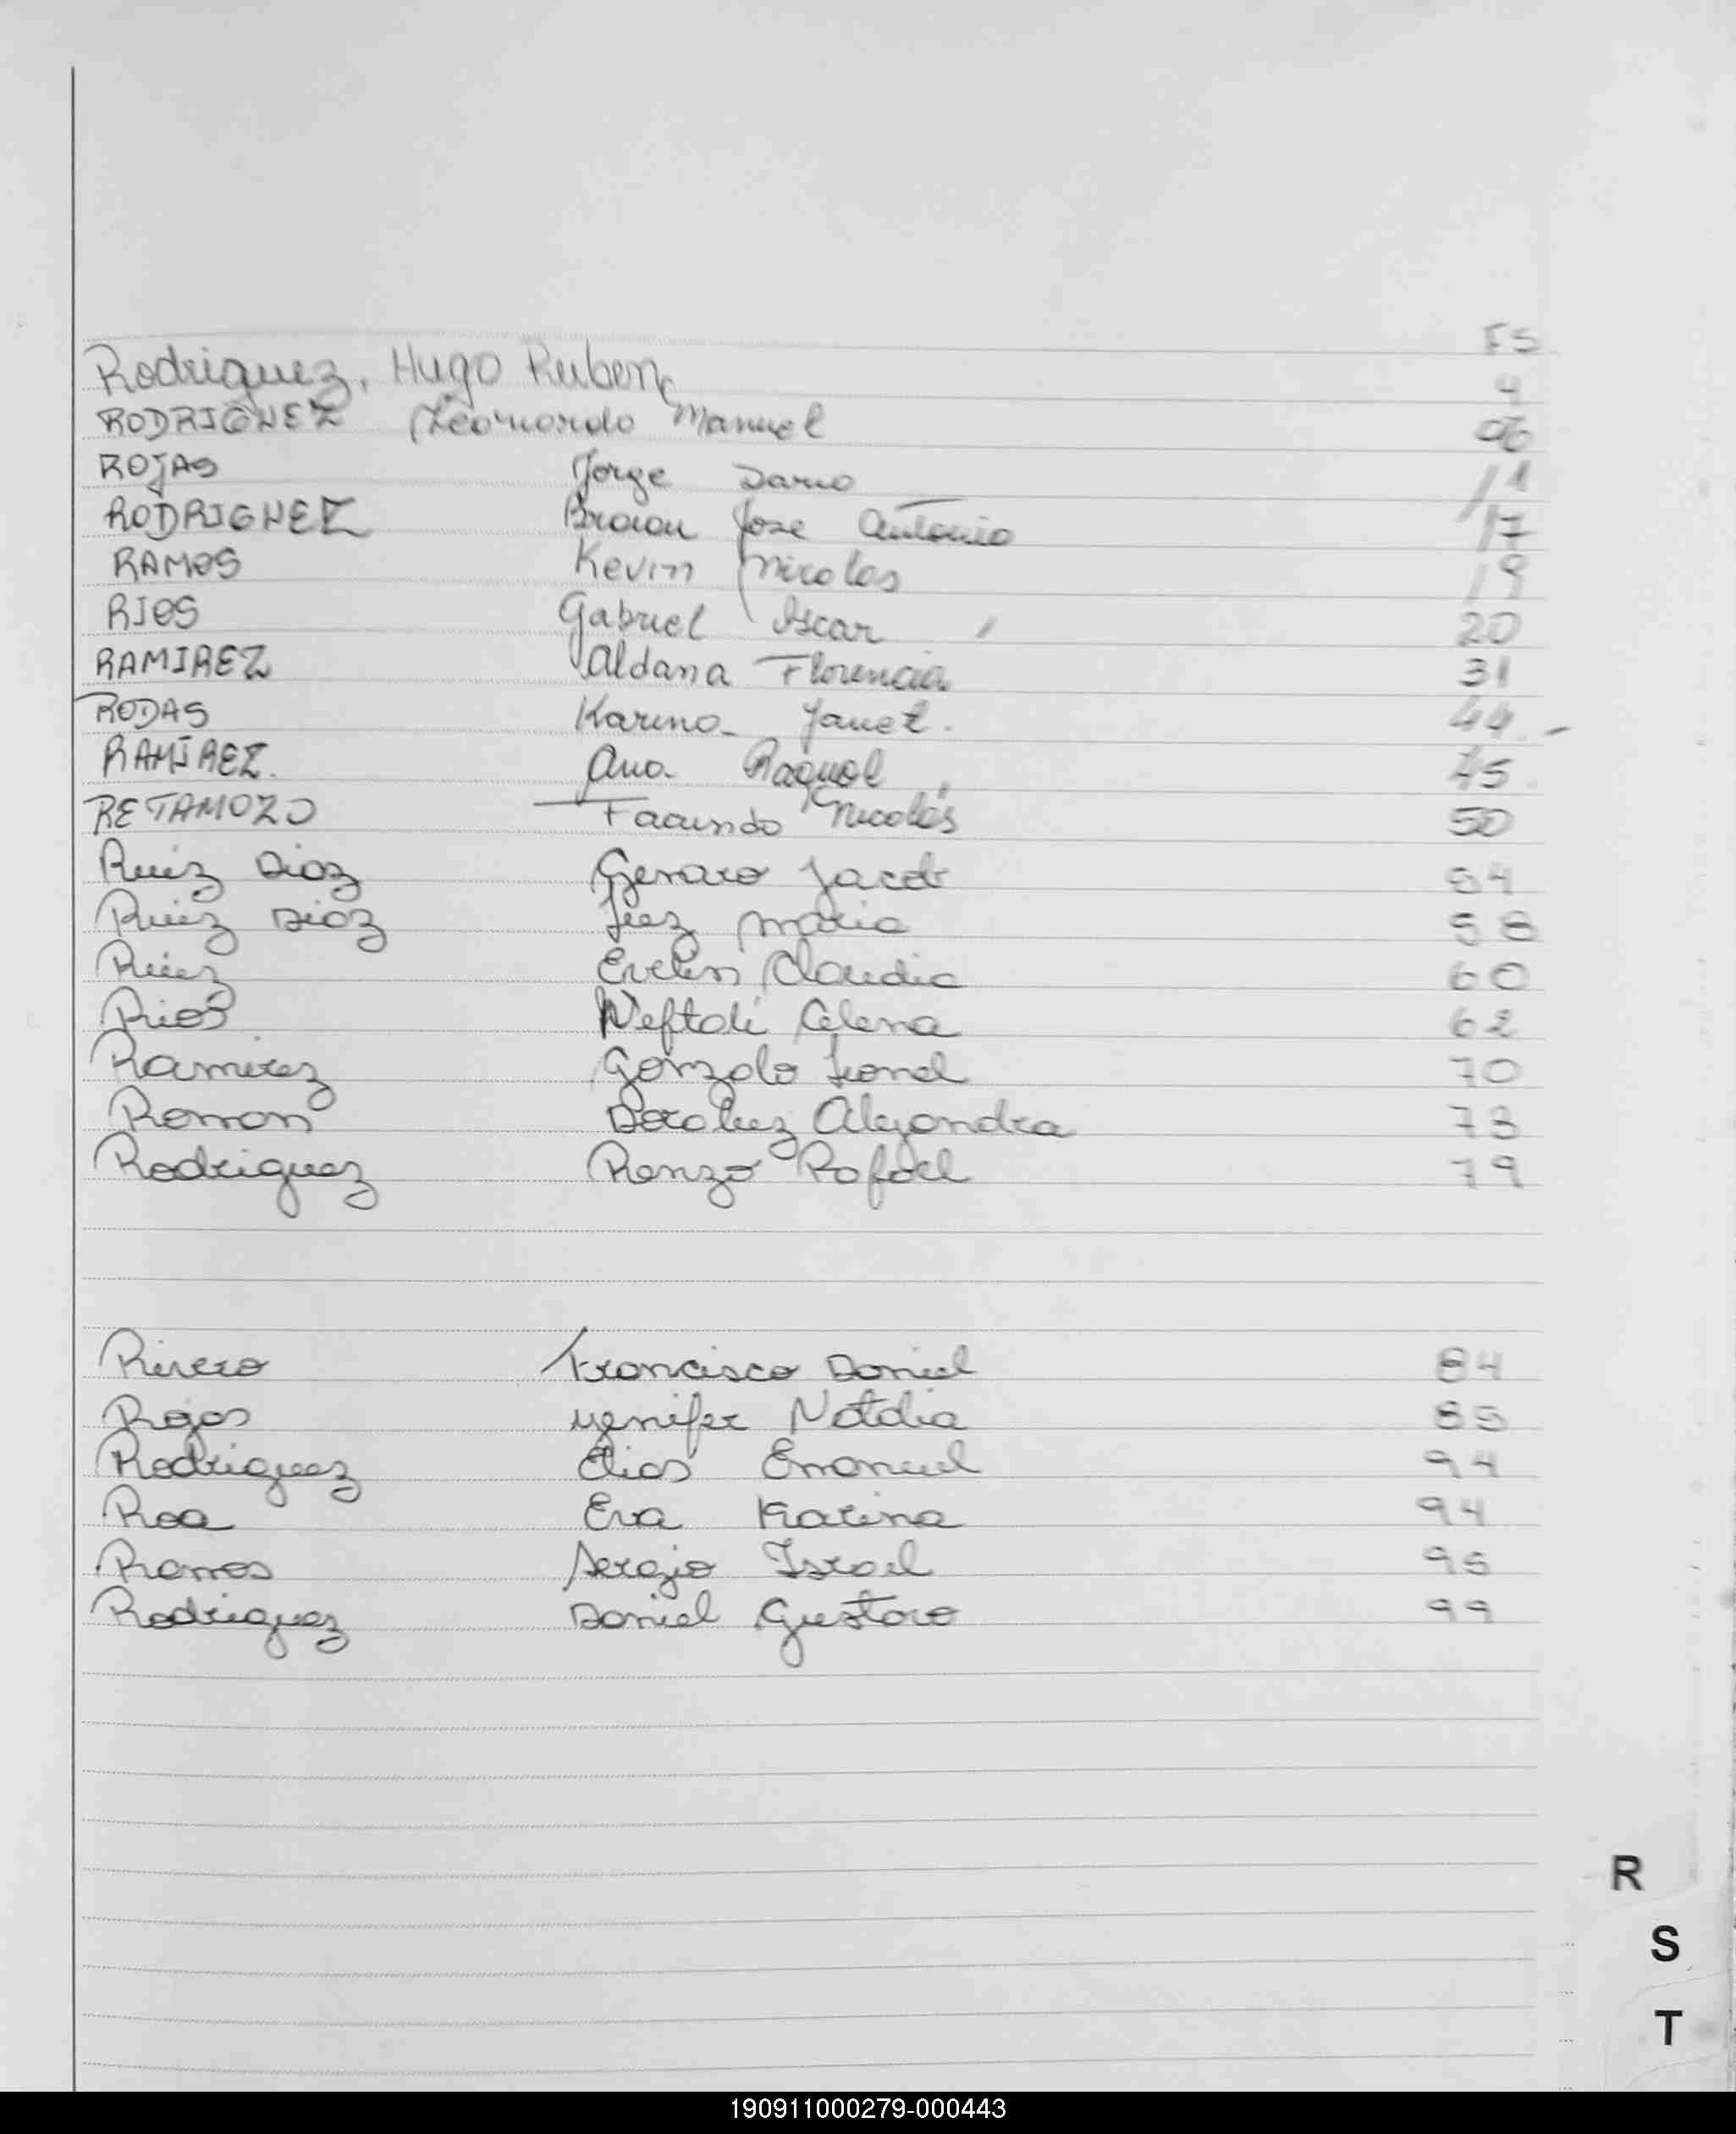 FS
Rodriguez, Hugo Ruben 4
RODRIGUEZ Leonardo Manuel 06
ROJAS Jorge Dario 11
RODRIGUEZ Braian Jose Antonio 17
RAMOS Kevin Nicolas 19
RIOS Gabriel Oscar 20
RAMIREZ Aldana Florencia 31
RODAS Karina Janet. 44.-
RAMIREZ. Ana Raquel 45
RETAMOZO Facundo Nicolás 50
Ruiz Diaz Genaro Jacob 54
Ruiz Diaz Luz Maria 58
Ruiz Evelin Claudia 60
Rios Neftali Celena 62
Ramirez Gonzalo Leonel 70
Roman Alejandra 73
Rodriguez Renzo Rafael 79
Rivero Francisco Daniel 84
Rojas Yenifer Natalia 85
Rodriguez Elias Emanuel 94
Roa Eva Karina 94
Ramos Sergio Israel 95
Rodriguez Daniel Gustavo 99
R
S
T
190911000279-000443